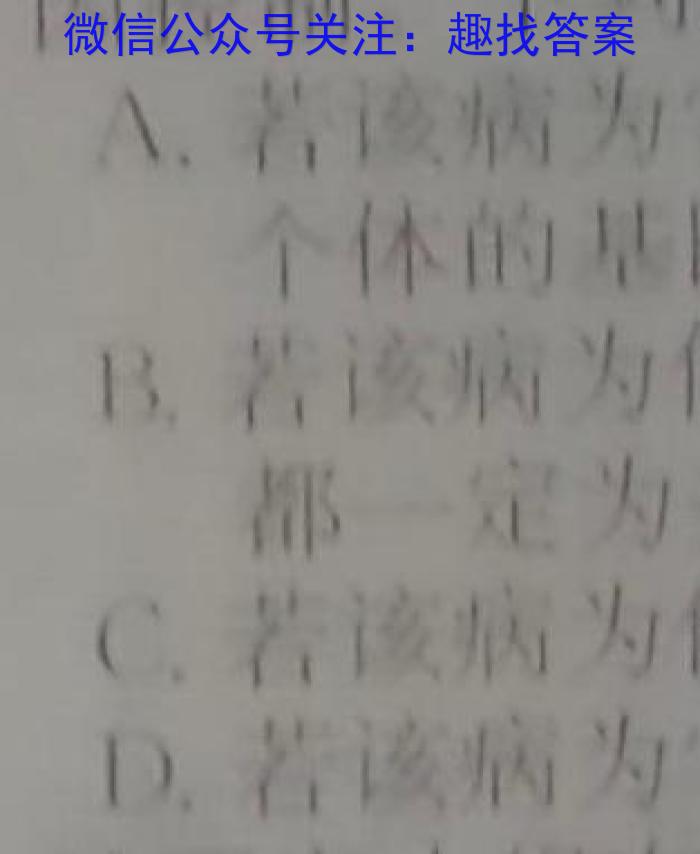 微信公众号关注：趣找答案
A. 若该病为
个体的基
B. 若该病为
都一定为
C. 若该病为
D. 若该病为